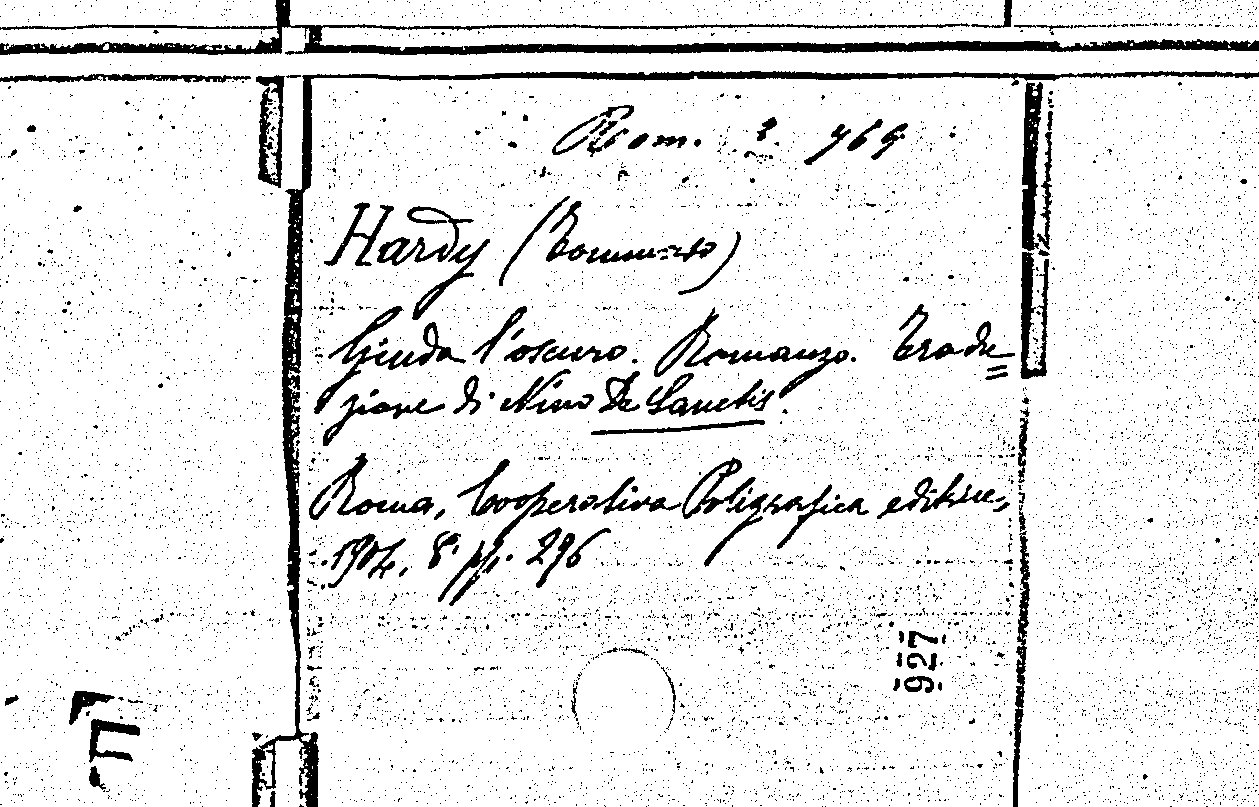 Rom. 2. 769
Hardy (Tommaso)
Giuda l'oscuro. Romanzo. Tradu=
zione di Nino De Sanctis.
Roma, Cooperativa Poligrafica editrice,
1904. 8° pp. 296
927
F